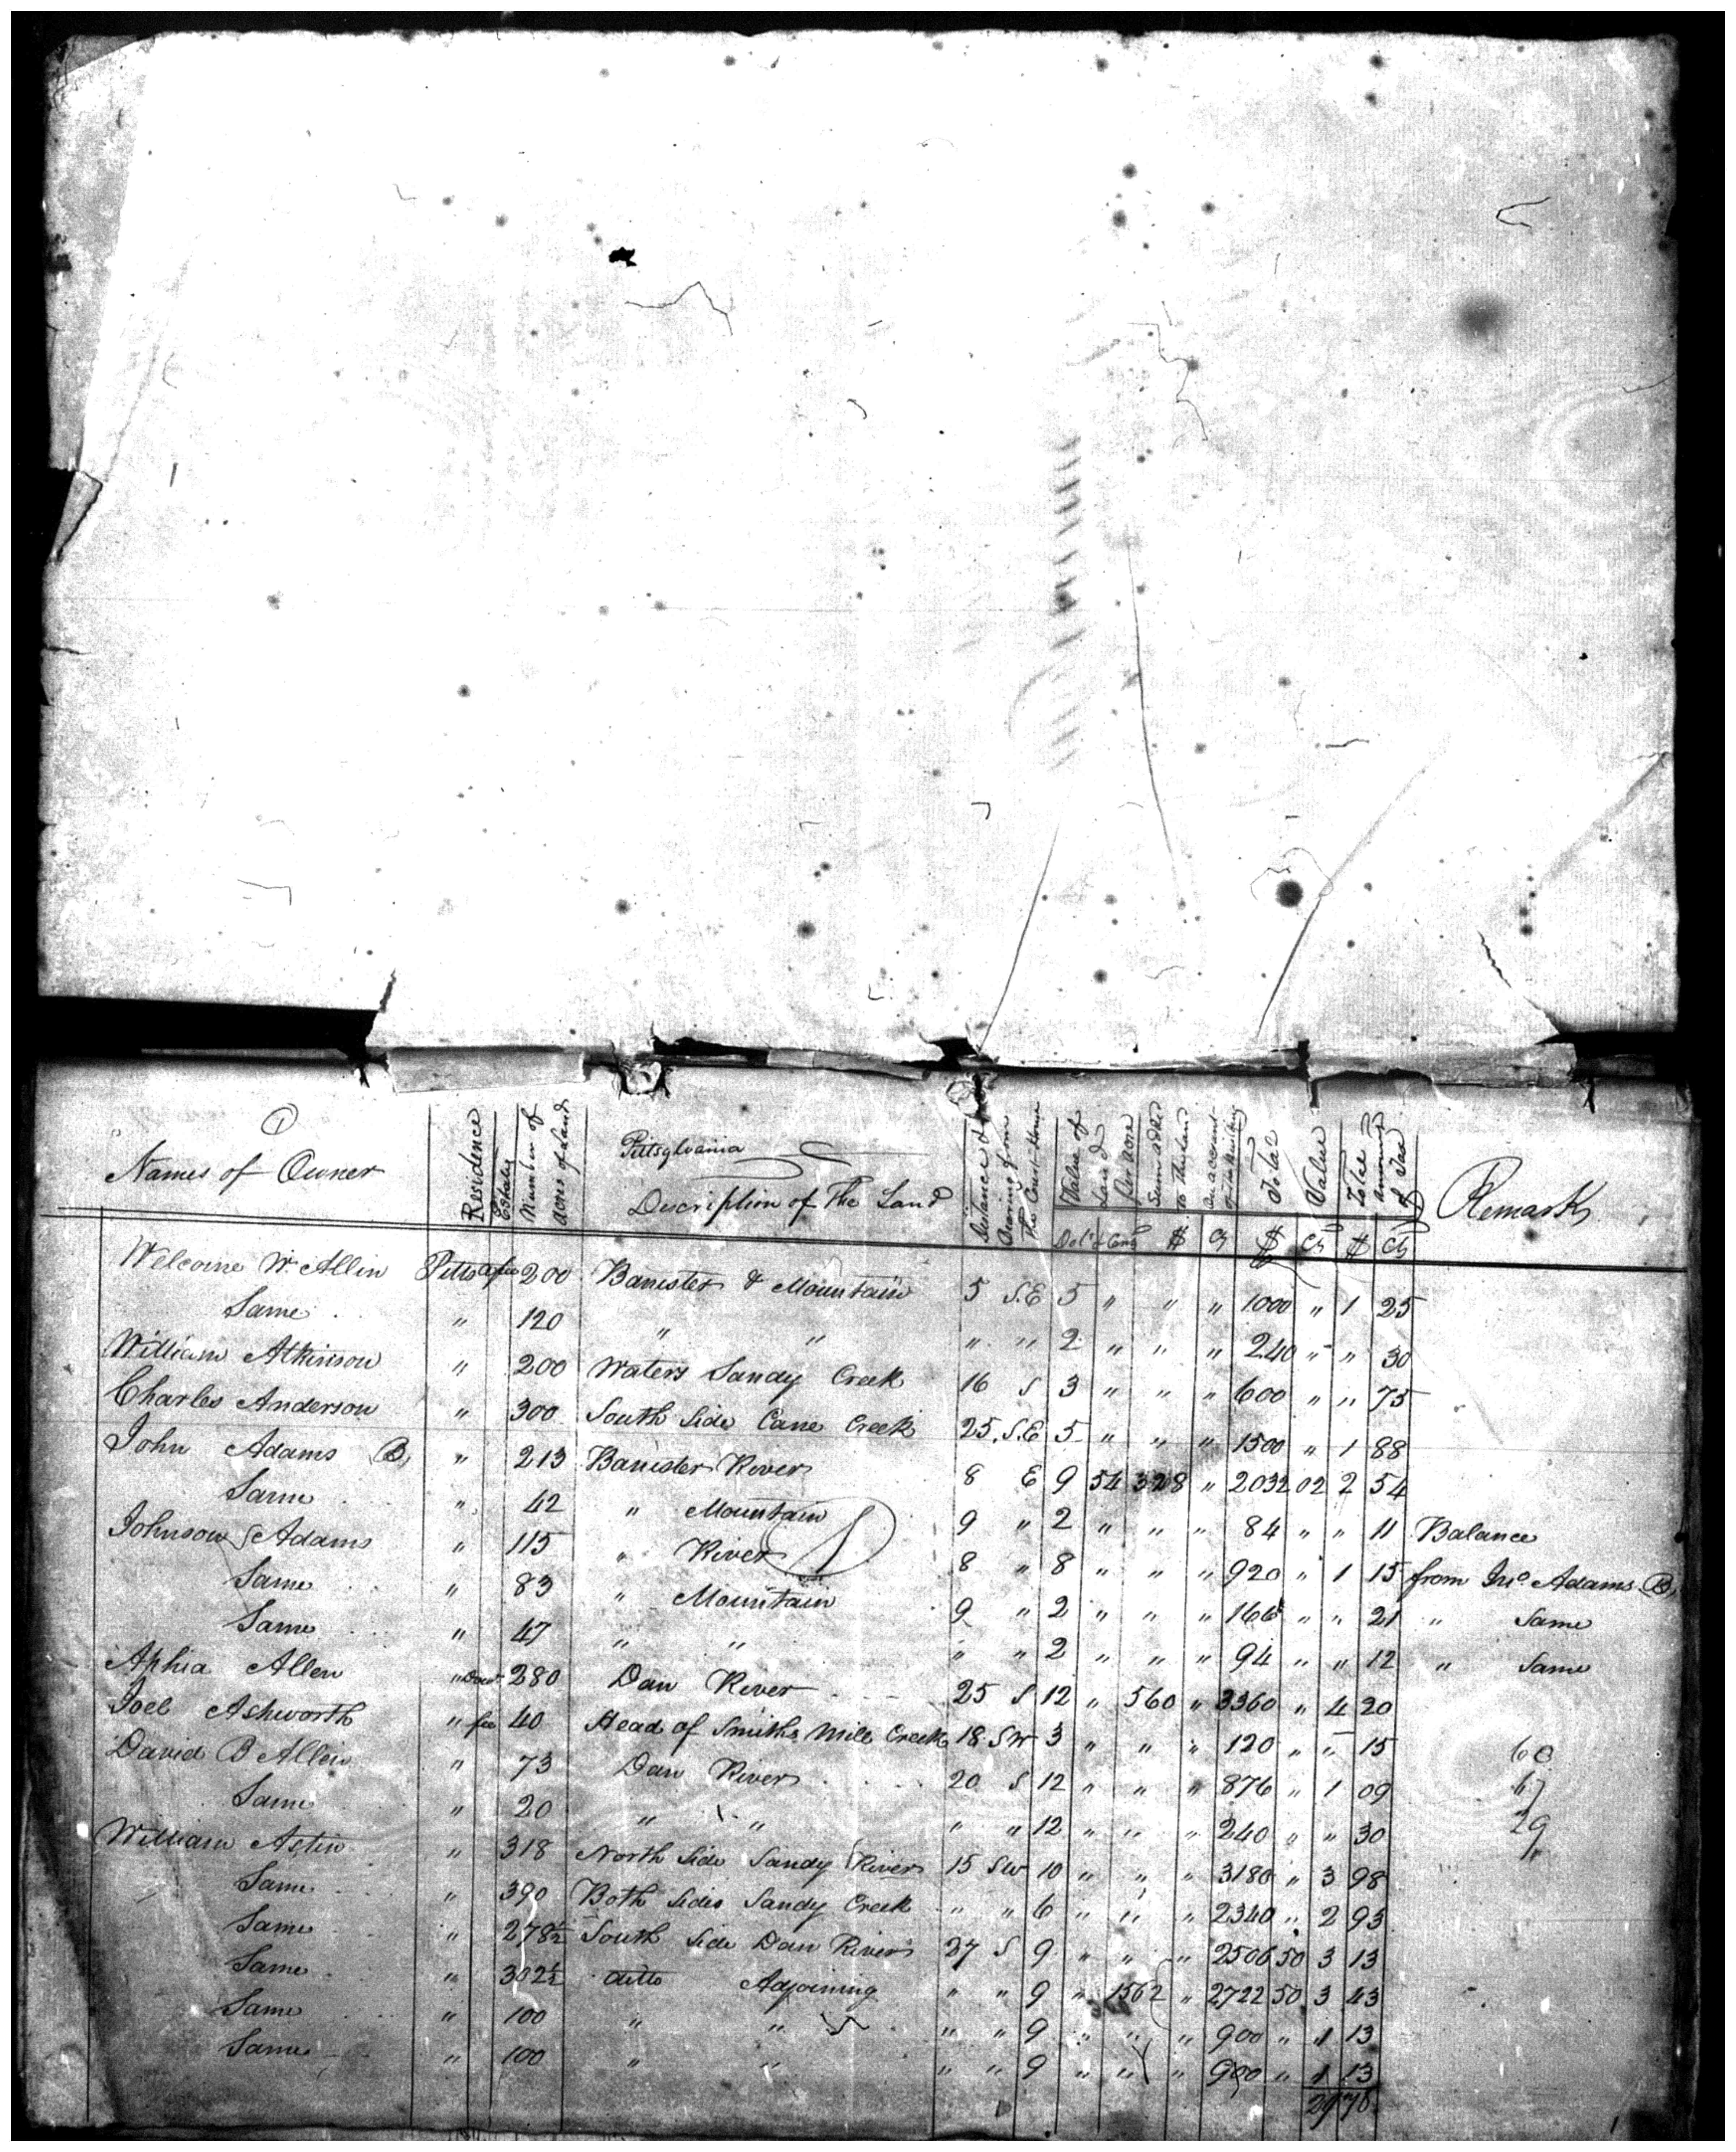 1
Names of Owner Residence Estate Number of Acres of Land Pittsylvania Description of The Land Distance & Bearing from the Court House Value of Land Per acre Sum added to the Land on account of buildings Total Value Total Amount of Tax Remarks
Dols Cents $ Cts $ Cts $ Cts
Welcome W. Allin Pitts fee 200 Banister & Mountain 5 S.E 5 " " " 1000 " 1 25
Same " 120 " " " " 2 " " " 240 " " 30
William Atkinson " 200 Waters Sandy Creek 16 S 3 " " " 600 " " 75
Charles Anderson " 300 South Side Cane Creek 25 S.E 5 " " " 1500 " 1 88
John Adams (B) " 213 Banister River 8 E 9 54 328 " 2032 02 2 54
Same " 42 " Mountain 9 " 2 " " " 84 " " 11 Balance
Johnson Adams " 115 " River 8 " 8 " " " 920 " 1 15 from Jno. Adams (B)
Same " 83 " Mountain 9 " 2 " " " 166 " " 21 " Same
Same " 47 " " " " 2 " " " 94 " " 12 " Same
Aphia Allen " Dow 280 Dan River 25 S 12 " 560 " 3360 " 4 20
Joel Ashworth " fee 40 Head of Smiths Mill Creek 18 SW 3 " " " 120 " " 15
David B Allen " 73 Dan River 20 S 12 " " " 876 " 1 09
Same " 20 " " " " 12 " " " 240 " " 30
William Astin " 318 North Side Sandy River 15 SW 10 " " " 3180 " 3 98
Same " 390 Both Sides Sandy Creek " " 6 " " " 2340 " 2 93
Same " 278½ South Side Dan River 27 S 9 " " " 2506 50 3 13
Same " 302½ ditto Adjoining " " 9 " 1562 " 2722 50 3 43
Same " 100 " " " " 9 " " " 900 " 1 13
Same " 100 " " " " 9 " " " 900 " 1 13